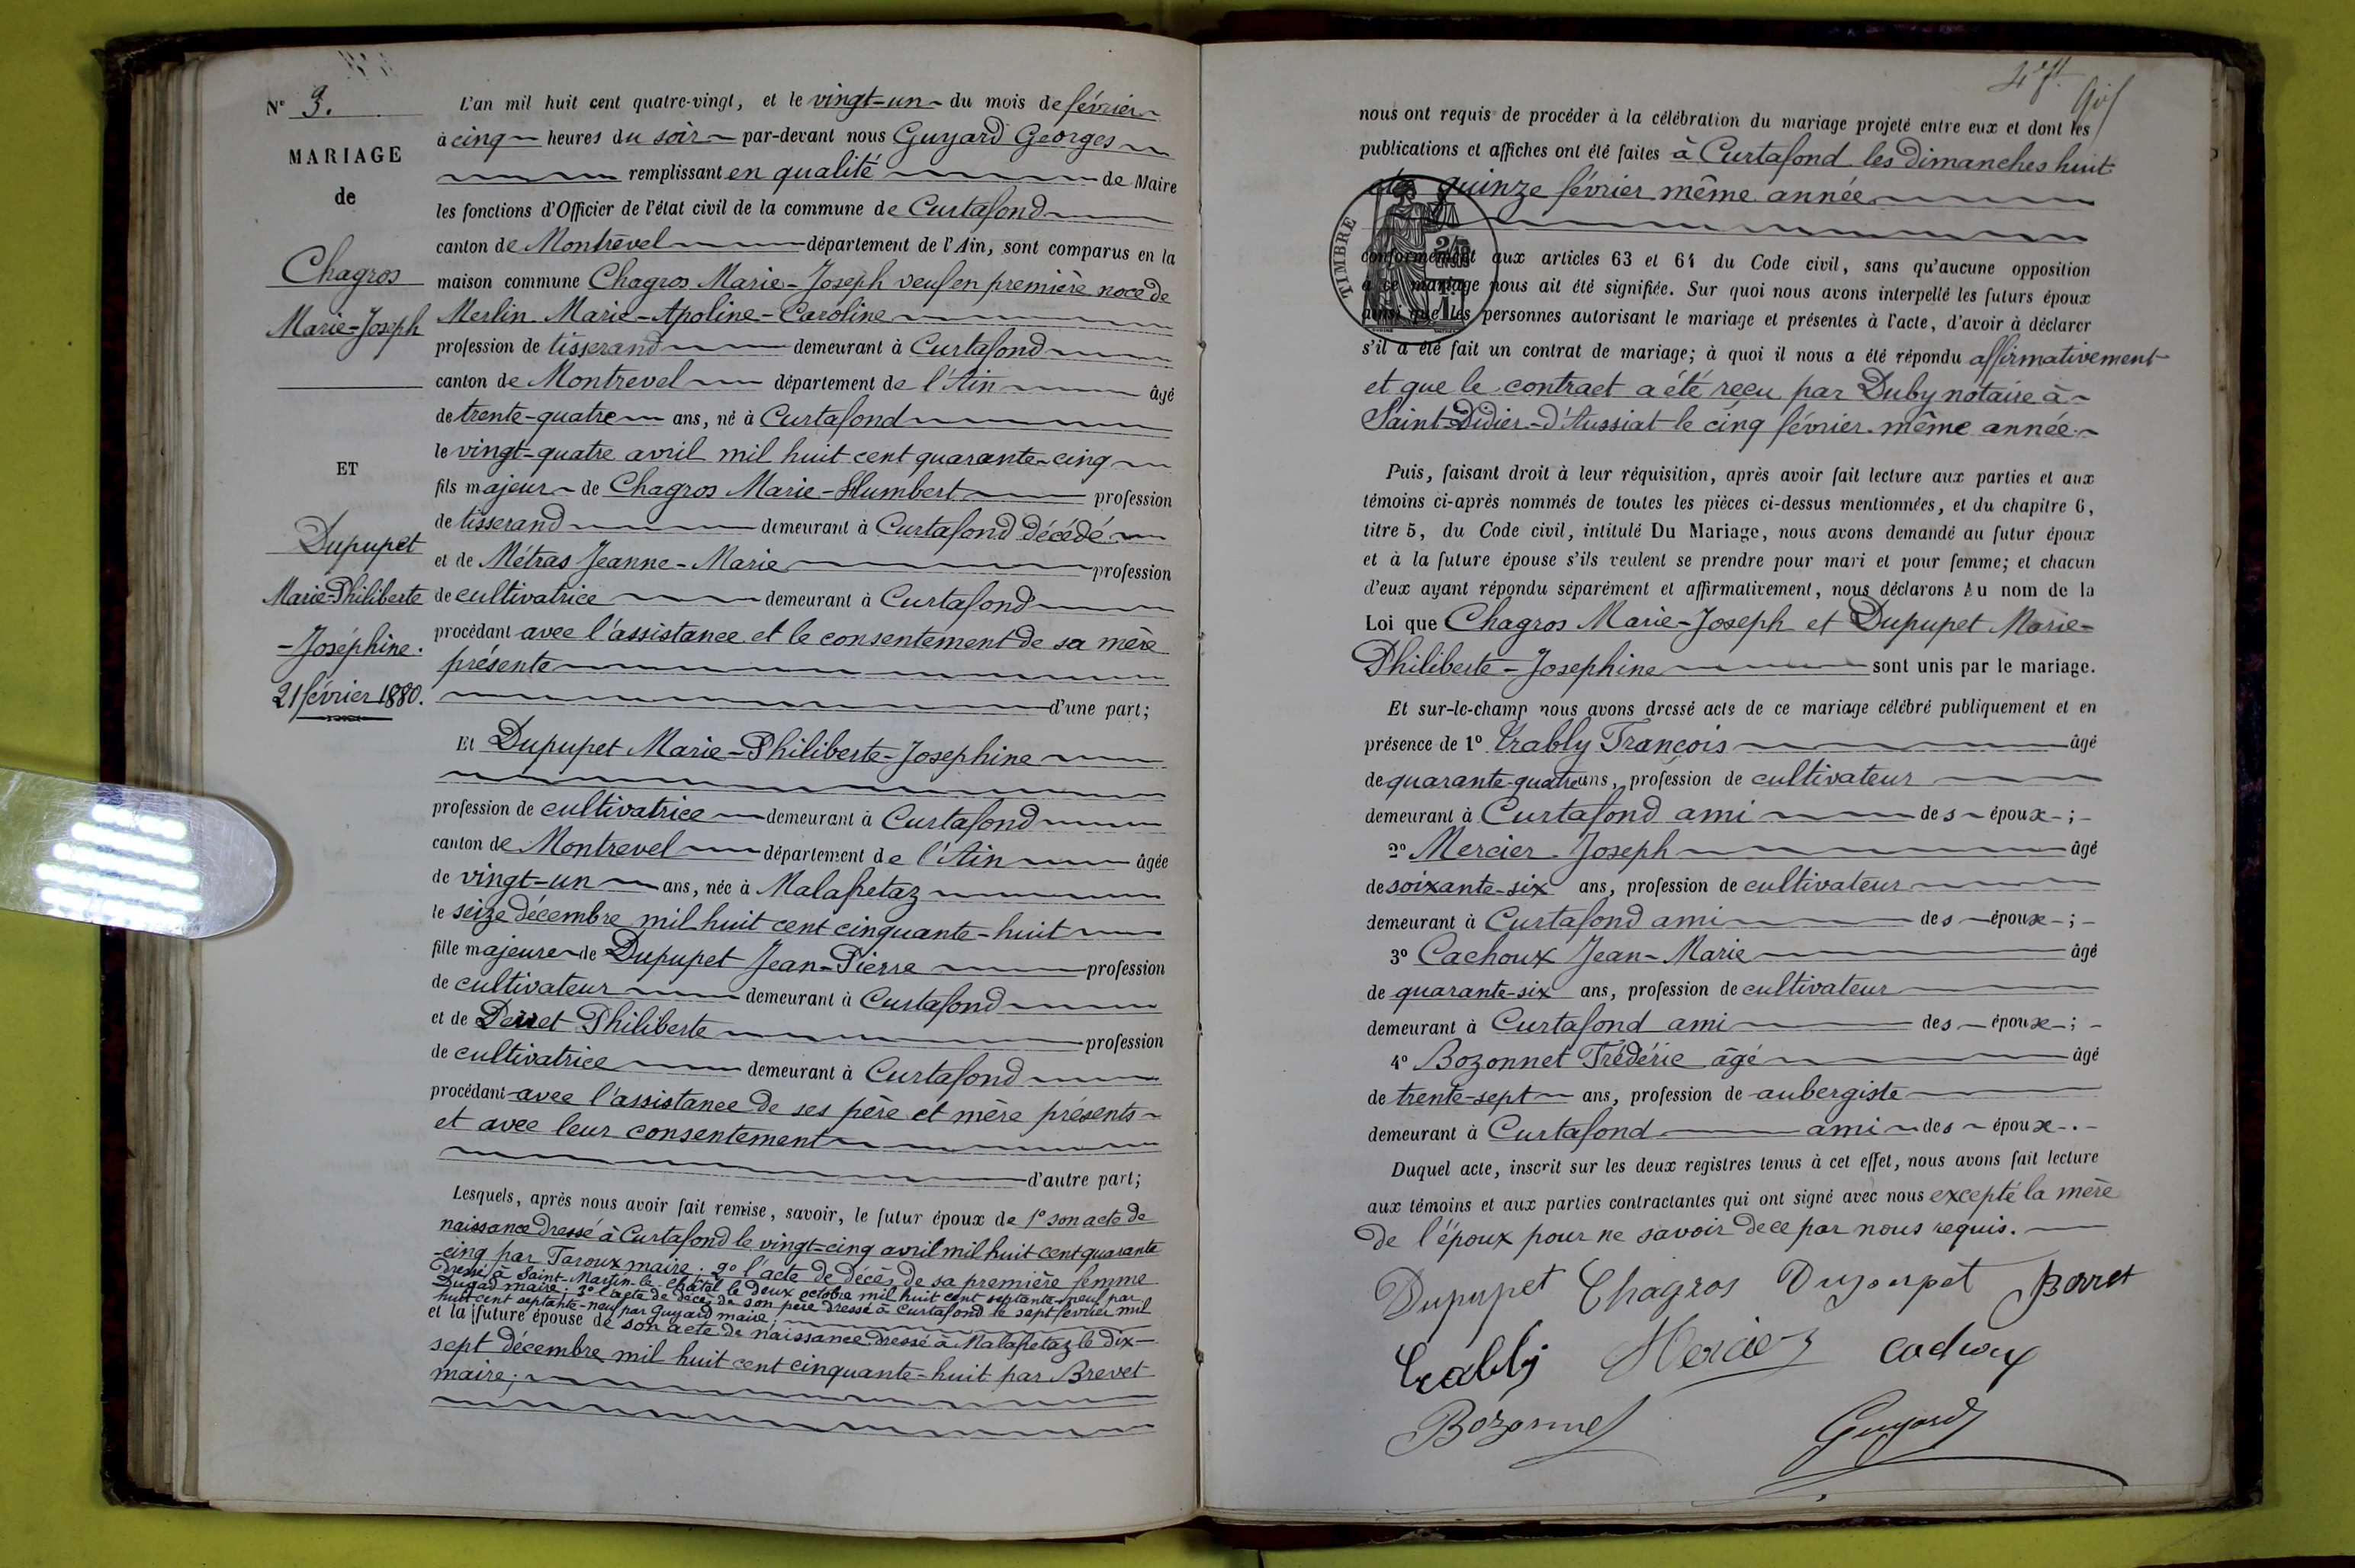 N° 3.
MARIAGE
de
Chagros
Marie-Joseph
ET
Dupupet
Marie-Philiberte
-Joséphine.
21 février 1880.
L'an mil huit cent quatre-vingt, et le vingt-un du mois de février
à cinq heures du soir par-devant nous Guyard Georges
remplissant en qualité de Maire
les fonctions d'Officier de l'état civil de la commune de Curtafond
canton de Montrevel département de l'Ain, sont comparus en la
maison commune Chagros Marie-Joseph veuf en première noce de
Merlin Marie-Apoline-Caroline
profession de tisserand demeurant à Curtafond
canton de Montrevel département de l'Ain âgé
de trente-quatre ans, né à Curtafond
le vingt-quatre avril mil huit cent quarante-cinq
fils majeur de Chagros Marie-Humbert profession
de tisserand demeurant à Curtafond décédé
et de Métras Jeanne-Marie profession
de cultivatrice demeurant à Curtafond
procédant avec l'assistance et le consentement de sa mère
présente
d'une part;
Et Dupupet Marie-Philiberte-Josephine
profession de cultivatrice demeurant à Curtafond
canton de Montrevel département de l'Ain âgée
de vingt-un ans, née à Malafretaz
le seize décembre mil huit cent cinquante-huit
fille majeure de Dupupet Jean-Pierre profession
de cultivateur demeurant à Curtafond
et de Perret Philiberte profession
de cultivatrice demeurant à Curtafond
procédant avec l'assistance de ses père et mère présents
et avec leur consentement
d'autre part;
Lesquels, après nous avoir fait remise, savoir, le futur époux de 1° son acte de
naissance dressé à Curtafond le vingt-cinq avril mil huit cent quarante
-cinq par Taroux maire; 2° l'acte de décès de sa première femme
dressé à Saint-Martin-le-Châtel le deux octobre mil huit cent septante-neuf par
Dugad maire; 3° l'acte de décès de son père dressé à Curtafond le sept février mil
huit cent septante-neuf par Guyard maire;
et la future épouse de son acte de naissance dressé à Malafretaz le dix-
sept décembre mil huit cent cinquante-huit par Brevet
maire;
47
nous ont requis de procéder à la célébration du mariage projeté entre eux et dont les
publications et affiches ont été faites à Curtafond les dimanches huit
et quinze février même année
TIMBRE
conformément aux articles 63 et 64 du Code civil, sans qu'aucune opposition
à ce mariage nous ait été signifiée. Sur quoi nous avons interpellé les futurs époux
ainsi que les personnes autorisant le mariage et présentes à l'acte, d'avoir à déclarer
s'il a été fait un contrat de mariage; à quoi il nous a été répondu affirmativement
et que le contract a été reçu par Duby notaire à
Saint-Didier-d'Aussiat le cinq février même année
Puis, faisant droit à leur réquisition, après avoir fait lecture aux parties et aux
témoins ci-après nommés de toutes les pièces ci-dessus mentionnées, et du chapitre 6,
titre 5, du Code civil, intitulé Du Mariage, nous avons demandé au futur époux
et à la future épouse s'ils veulent se prendre pour mari et pour femme; et chacun
d'eux ayant répondu séparément et affirmativement, nous déclarons Au nom de la
Loi que Chagros Marie-Joseph et Dupupet Marie-
Philiberte-Josephine sont unis par le mariage.
Et sur-le-champ nous avons dressé acte de ce mariage célébré publiquement et en
présence de 1° Crably François âgé
de quarante-quatre ans, profession de cultivateur
demeurant à Curtafond ami des époux;
2° Mercier Joseph âgé
de soixante-six ans, profession de cultivateur
demeurant à Curtafond ami des époux;
3° Cachoux Jean-Marie âgé
de quarante-six ans, profession de cultivateur
demeurant à Curtafond ami des époux;
4° Bozonnet Frédéric âgé âgé
de trente-sept ans, profession de aubergiste
demeurant à Curtafond ami des époux.
Duquel acte, inscrit sur les deux registres tenus à cet effet, nous avons fait lecture
aux témoins et aux parties contractantes qui ont signé avec nous excepté la mère
de l'époux pour ne savoir de ce par nous requis.
Dupupet Chagros Dupupet Perret
Crably Mercier Cachoux
Bozonnet Guyard